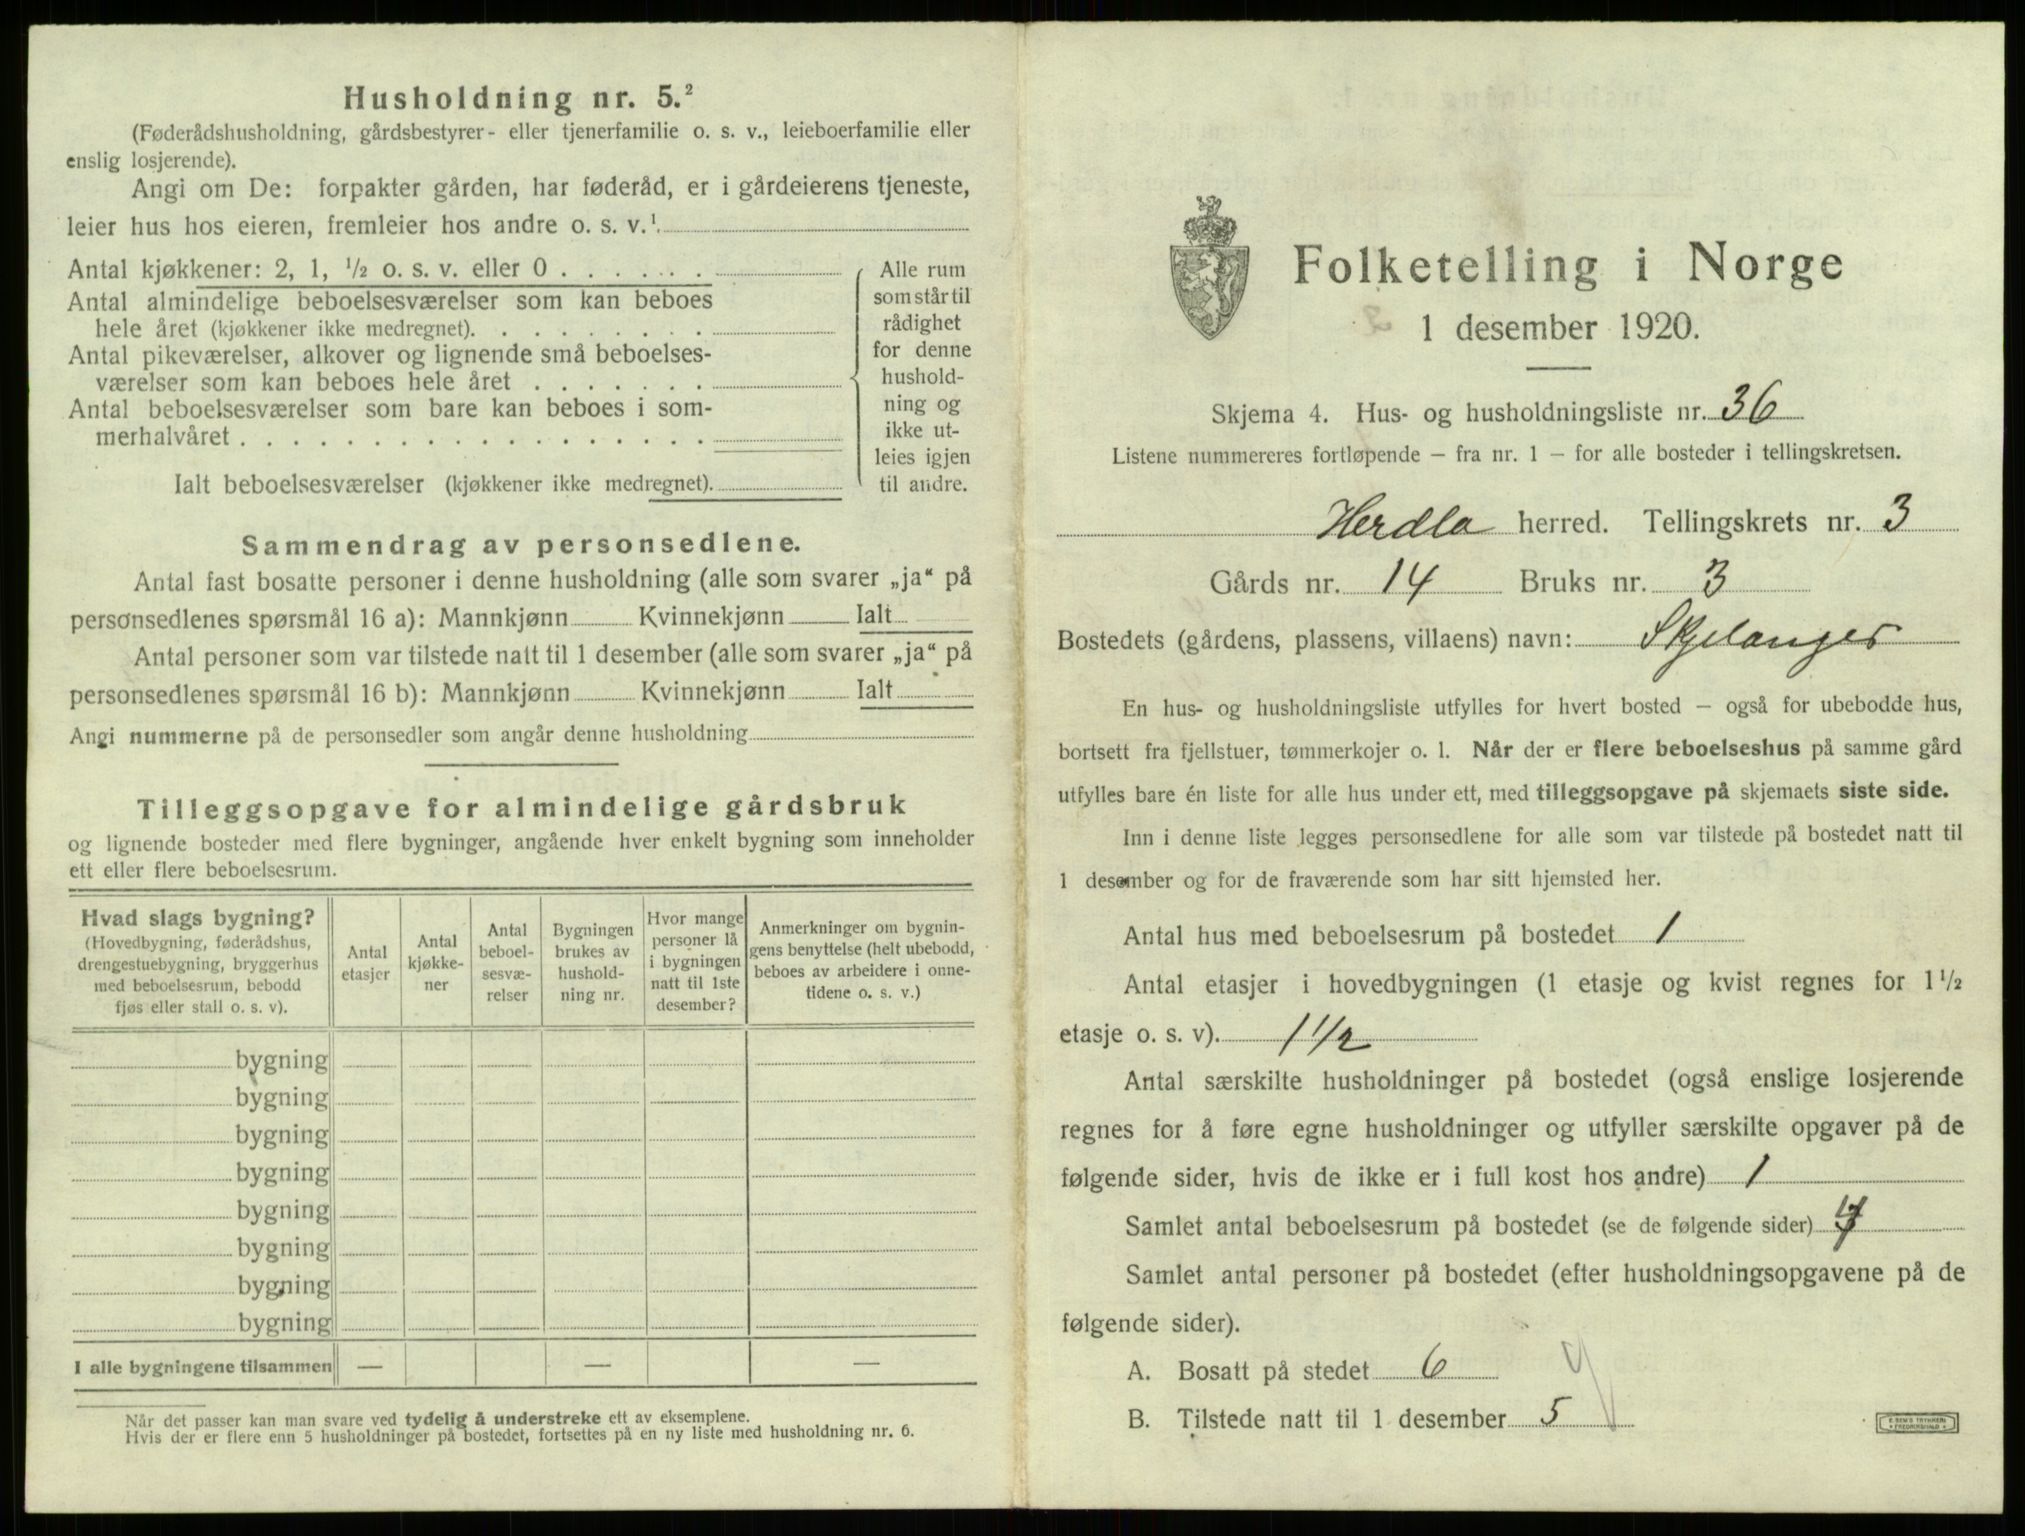 Husholdning nr. 5.²
(Føderådshusholdning, gårdsbestyrer- eller tjenerfamilie o. s. v., leieboerfamilie eller
enslig losjerende).
Angi om De: forpakter gården, har føderåd, er i gårdeierens tjeneste,
leier hus hos eieren, fremleier hos andre o. s. v.¹
Antal kjøkkener: 2, 1, ½ o. s. v. eller 0 . . . . . .
Antal almindelige beboelsesværelser som kan beboes
hele året (kjøkkener ikke medregnet). . . . . . . . .
Antal pikeværelser, alkover og lignende små beboelses-
værelser som kan beboes hele året . . . . . . .
Antal beboelsesværelser som bare kan beboes i som-
merhalvåret . . . . . . . . . . . . . . . . . .
Ialt beboelsesværelser (kjøkkener ikke medregnet).
Alle rum
som står til
rådighet
for denne
hushold-
ning og
ikke ut-
leies igjen
til andre.
Sammendrag av personsedlene.
Antal fast bosatte personer i denne husholdning (alle som svarer „ja“ på
personsedlenes spørsmål 16 a): Mannkjønn Kvinnekjønn Ialt
Antal personer som var tilstede natt til 1 desember (alle som svarer „ja“ på
personsedlenes spørsmål 16 b): Mannkjønn Kvinnekjønn Ialt
Angi nummerne på de personsedler som angår denne husholdning
Tilleggsopgave for almindelige gårdsbruk
og lignende bosteder med flere bygninger, angående hver enkelt bygning som inneholder
ett eller flere beboelsesrum.
Hvad slags bygning?
(Hovedbygning, føderådshus,
drengestuebygning, bryggerhus
med beboelsesrum, bebodd
fjøs eller stall o. s. v).
Antal
etasjer
Antal
kjøkke-
ner
Antal
beboel-
sesvæ-
relser
Bygningen
brukes av
hushold-
ning nr.
Hvor mange
personer lå
i bygningen
natt til 1ste
desember?
Anmerkninger om bygnin-
gens benyttelse (helt ubebodd,
beboes av arbeidere i onne-
tidene o. s. v.)
bygning
bygning
bygning
bygning
bygning
bygning
bygning
bygning
I alle bygningene tilsammen — — —
Når det passer kan man svare ved tydelig å understreke ett av eksemplene.
Hvis der er flere enn 5 husholdninger på bostedet, fortsettes på en ny liste med husholdning nr. 6.
Folketelling i Norge
1 desember 1920.
Skjema 4. Hus- og husholdningsliste nr. 36
Listene nummereres fortløpende — fra nr. 1 — for alle bosteder i tellingskretsen.
Herdla herred. Tellingskrets nr. 3
Gårds nr. 14 Bruks nr. 3
Bostedets (gårdens, plassens, villaens) navn: Skjelanger
En hus- og husholdningsliste utfylles for hvert bosted — også for ubebodde hus,
bortsett fra fjellstuer, tømmerkojer o. l. Når der er flere beboelseshus på samme gård
utfylles bare én liste for alle hus under ett, med tilleggsopgave på skjemaets siste side.
Inn i denne liste legges personsedlene for alle som var tilstede på bostedet natt til
1 desember og for de fraværende som har sitt hjemsted her.
Antal hus med beboelsesrum på bostedet 1
Antal etasjer i hovedbygningen (1 etasje og kvist regnes for 1 ½
etasje o. s. v). 1 ½
Antal særskilte husholdninger på bostedet (også enslige losjerende
regnes for å føre egne husholdninger og utfyller særskilte opgaver på de
følgende sider, hvis de ikke er i full kost hos andre) 1
Samlet antal beboelsesrum på bostedet (se de følgende sider)
Samlet antal personer på bostedet (efter husholdningsopgavene på de
følgende sider).
A. Bosatt på stedet 6
B. Tilstede natt til 1 desember 5
E. SEM'S TRYKKERI
FREDRIKSHALD